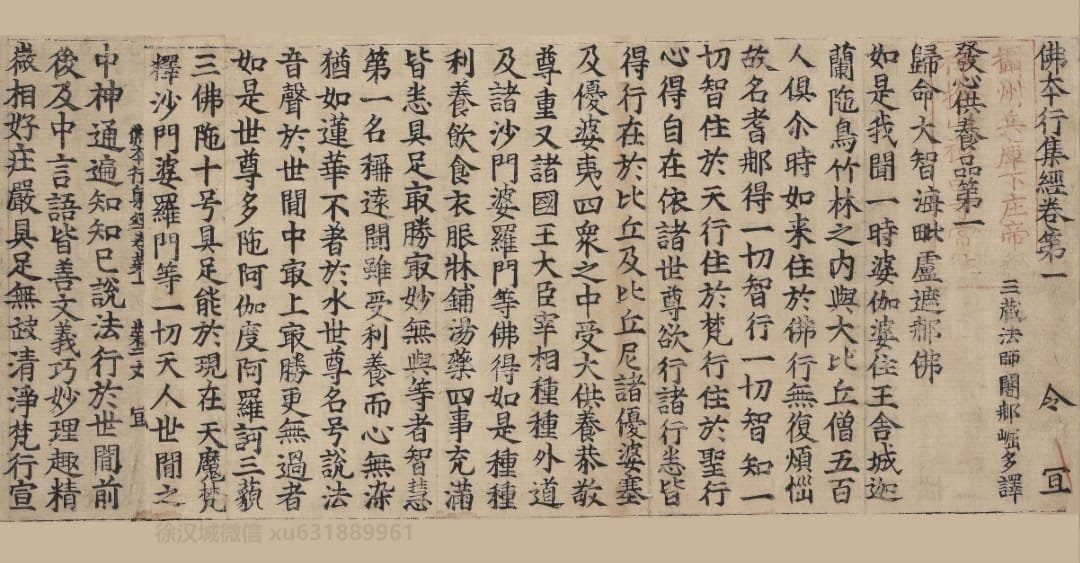 佛夲行集經卷第一　令　冝
三藏法師闍那崛多譯
攝州兵庫下庄帝釋
發心供養品第一
歸命大智海毗盧遮那佛
如是我聞一時婆伽婆住王舍城迦
蘭陁鳥竹林之内與大比丘僧五百
人俱尒時如来住於佛行無復煩惱
故名耆那得一切智行一切智知一
切智住於天行住於梵行住於聖行
心得自在依諸世尊欲行諸行悉皆
得行在於比丘及比丘尼諸優婆塞
及優婆夷四衆之中受大供養恭敬
尊重又諸國王大臣宰相種種外道
及諸沙門婆羅門等佛得如是種種
利養飲食衣服牀鋪湯藥四事充滿
皆悉具足㝡勝㝡妙無與等者智慧
第一名稱遠聞雖受利養而心無染
猶如蓮華不著於水世尊名号說法
音聲於世間中㝡上㝡勝更無過者
如是世尊多陁阿伽度阿羅訶三藐
三佛陁十号具足能於現在天魔梵
釋沙門婆羅門等一切天人世間之
佛夲行集經卷第一　第二丈　冝
中神通遍知知已說法行於世間前
後及中言語皆善文義巧妙理趣精
微相好庄嚴具足無缺清淨梵行宣
徐汉城微信 xu631889961